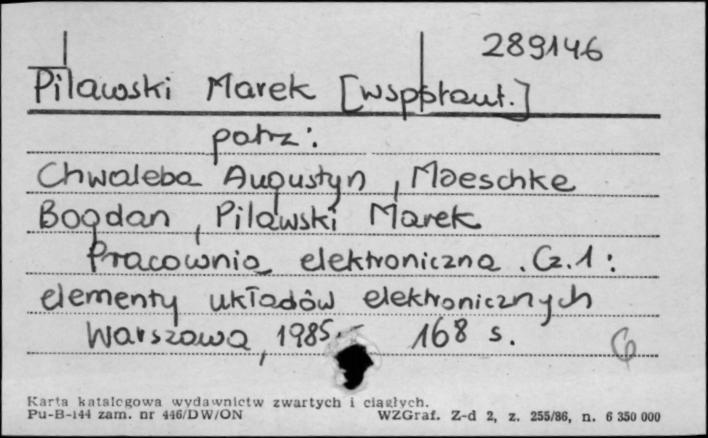 289146
Pilawski Marek [współaut.]
patrz:
Chwaleba Augustyn, Maeschke
Bogdan, Pilawski Marek
Pracownia elektroniczna. Cz.1:
elementy układów elektronicznych
Warszawa, 1985.- 168 s.
Karta katalogowa wydawnictw zwartych i ciągłych.
Pu-B-144 zam. nr 446/DW/ON WZGraf. Z-d 2, z. 255/86, n. 6 350 000